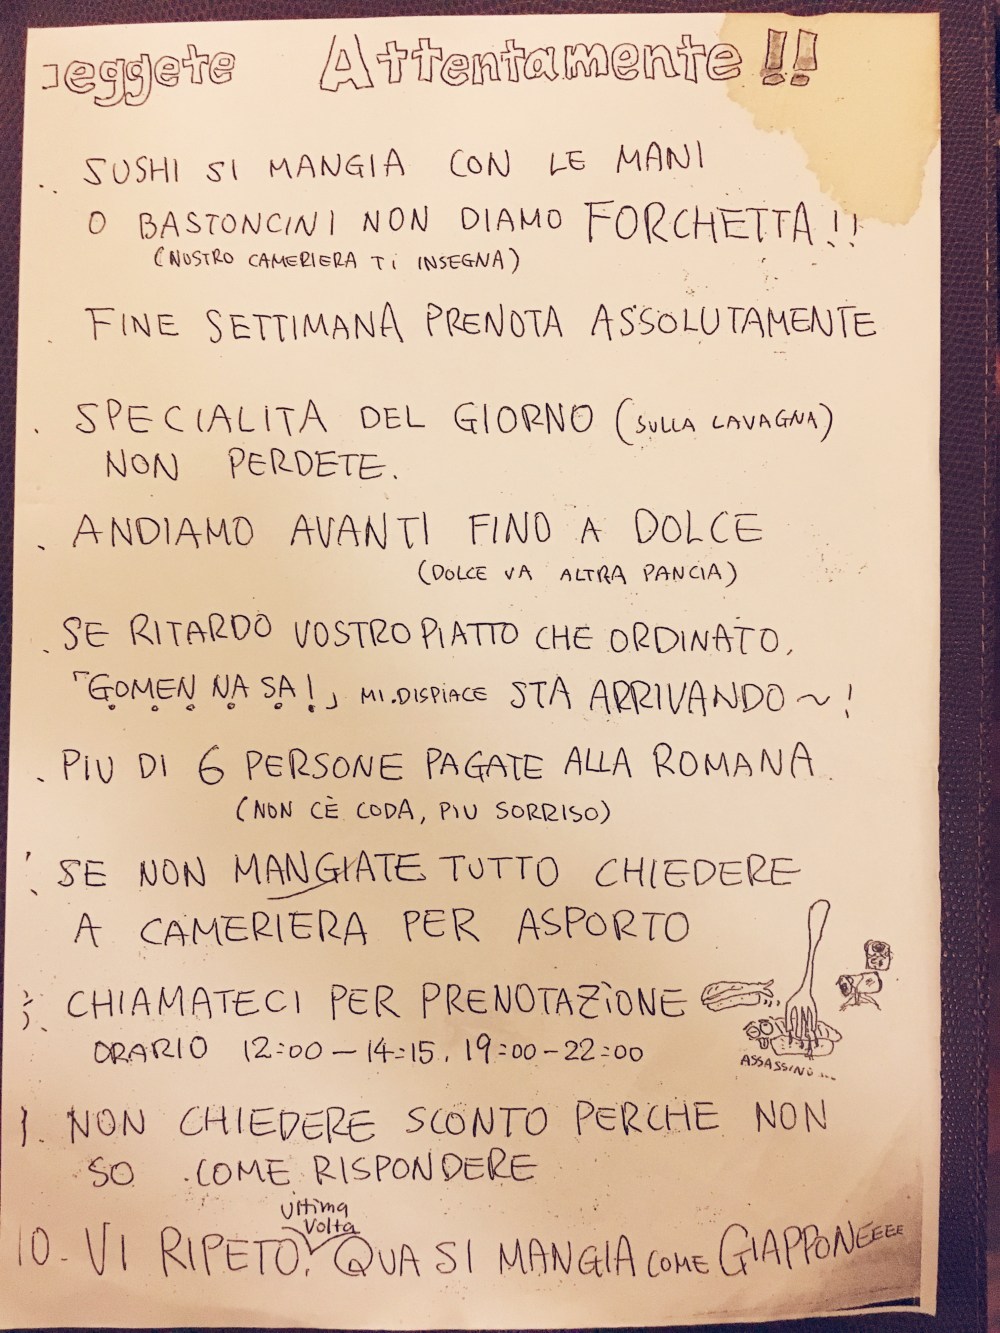 Leggete Attentamente !!
SUSHI SI MANGIA CON LE MANI
O BASTONCINI NON DIAMO FORCHETTA!!
(NOSTRO CAMERIERA Ti INSEGNA)
FINE SETTIMANA PRENOTA ASSOLUTAMENTE
. SPECIALITA DEL GIORNO (SULLA LAVAGNA)
NON PERDETE.
. ANDIAMO AVANTI FINO A DOLCE
(DOLCE VA ALTRA PANCIA)
. SE RITARDO VOSTRO PIATTO CHE ORDINATO,
「GOMEN NA SA!」 MI.DISPIACE STA ARRIVANDO ~!
. PIU DI 6 PERSONE PAGATE ALLA ROMANA.
(NON CÈ CODA, PIU SORRISO)
. SE NON MANGIATE TUTTO CHIEDERE
A CAMERIERA PER ASPORTO
. CHIAMATECI PER PRENOTAZIONE
ORARIO 12:00 - 14:15. 19:00 - 22:00
ASSASSINO...
. NON CHIEDERE SCONTO PERCHE NON
SO .COME RISPONDERE
ultima
volta
10. VI RIPETO. QUA SI MANGIA COME GIAPPONEEEE